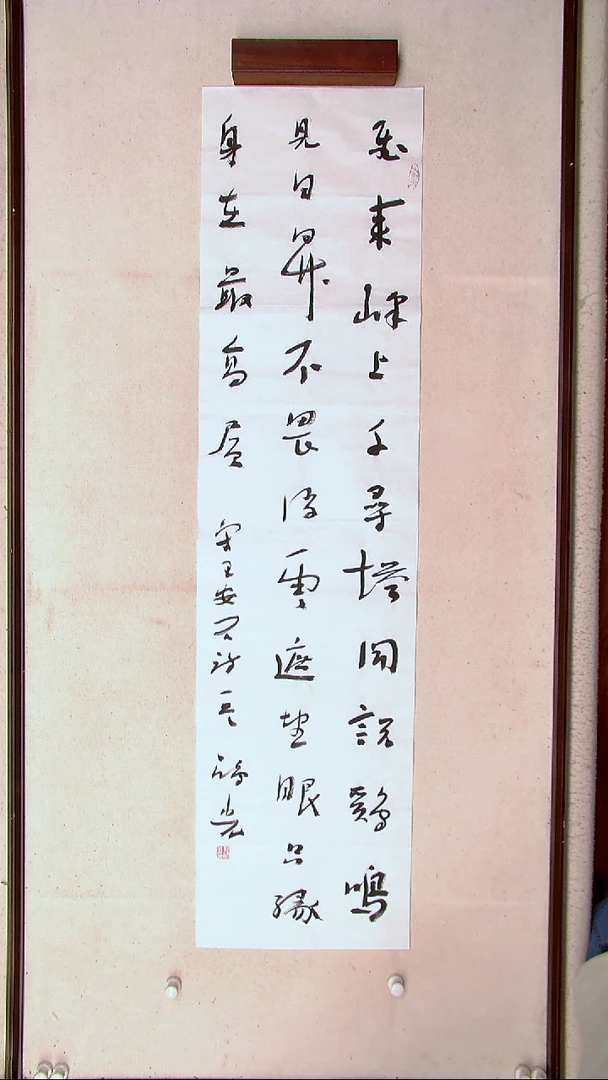 飛來峰上千尋塔聞說鷄鳴
見日昇不畏浮雲遮望眼只緣
身在最高層
宋王安石詩一首